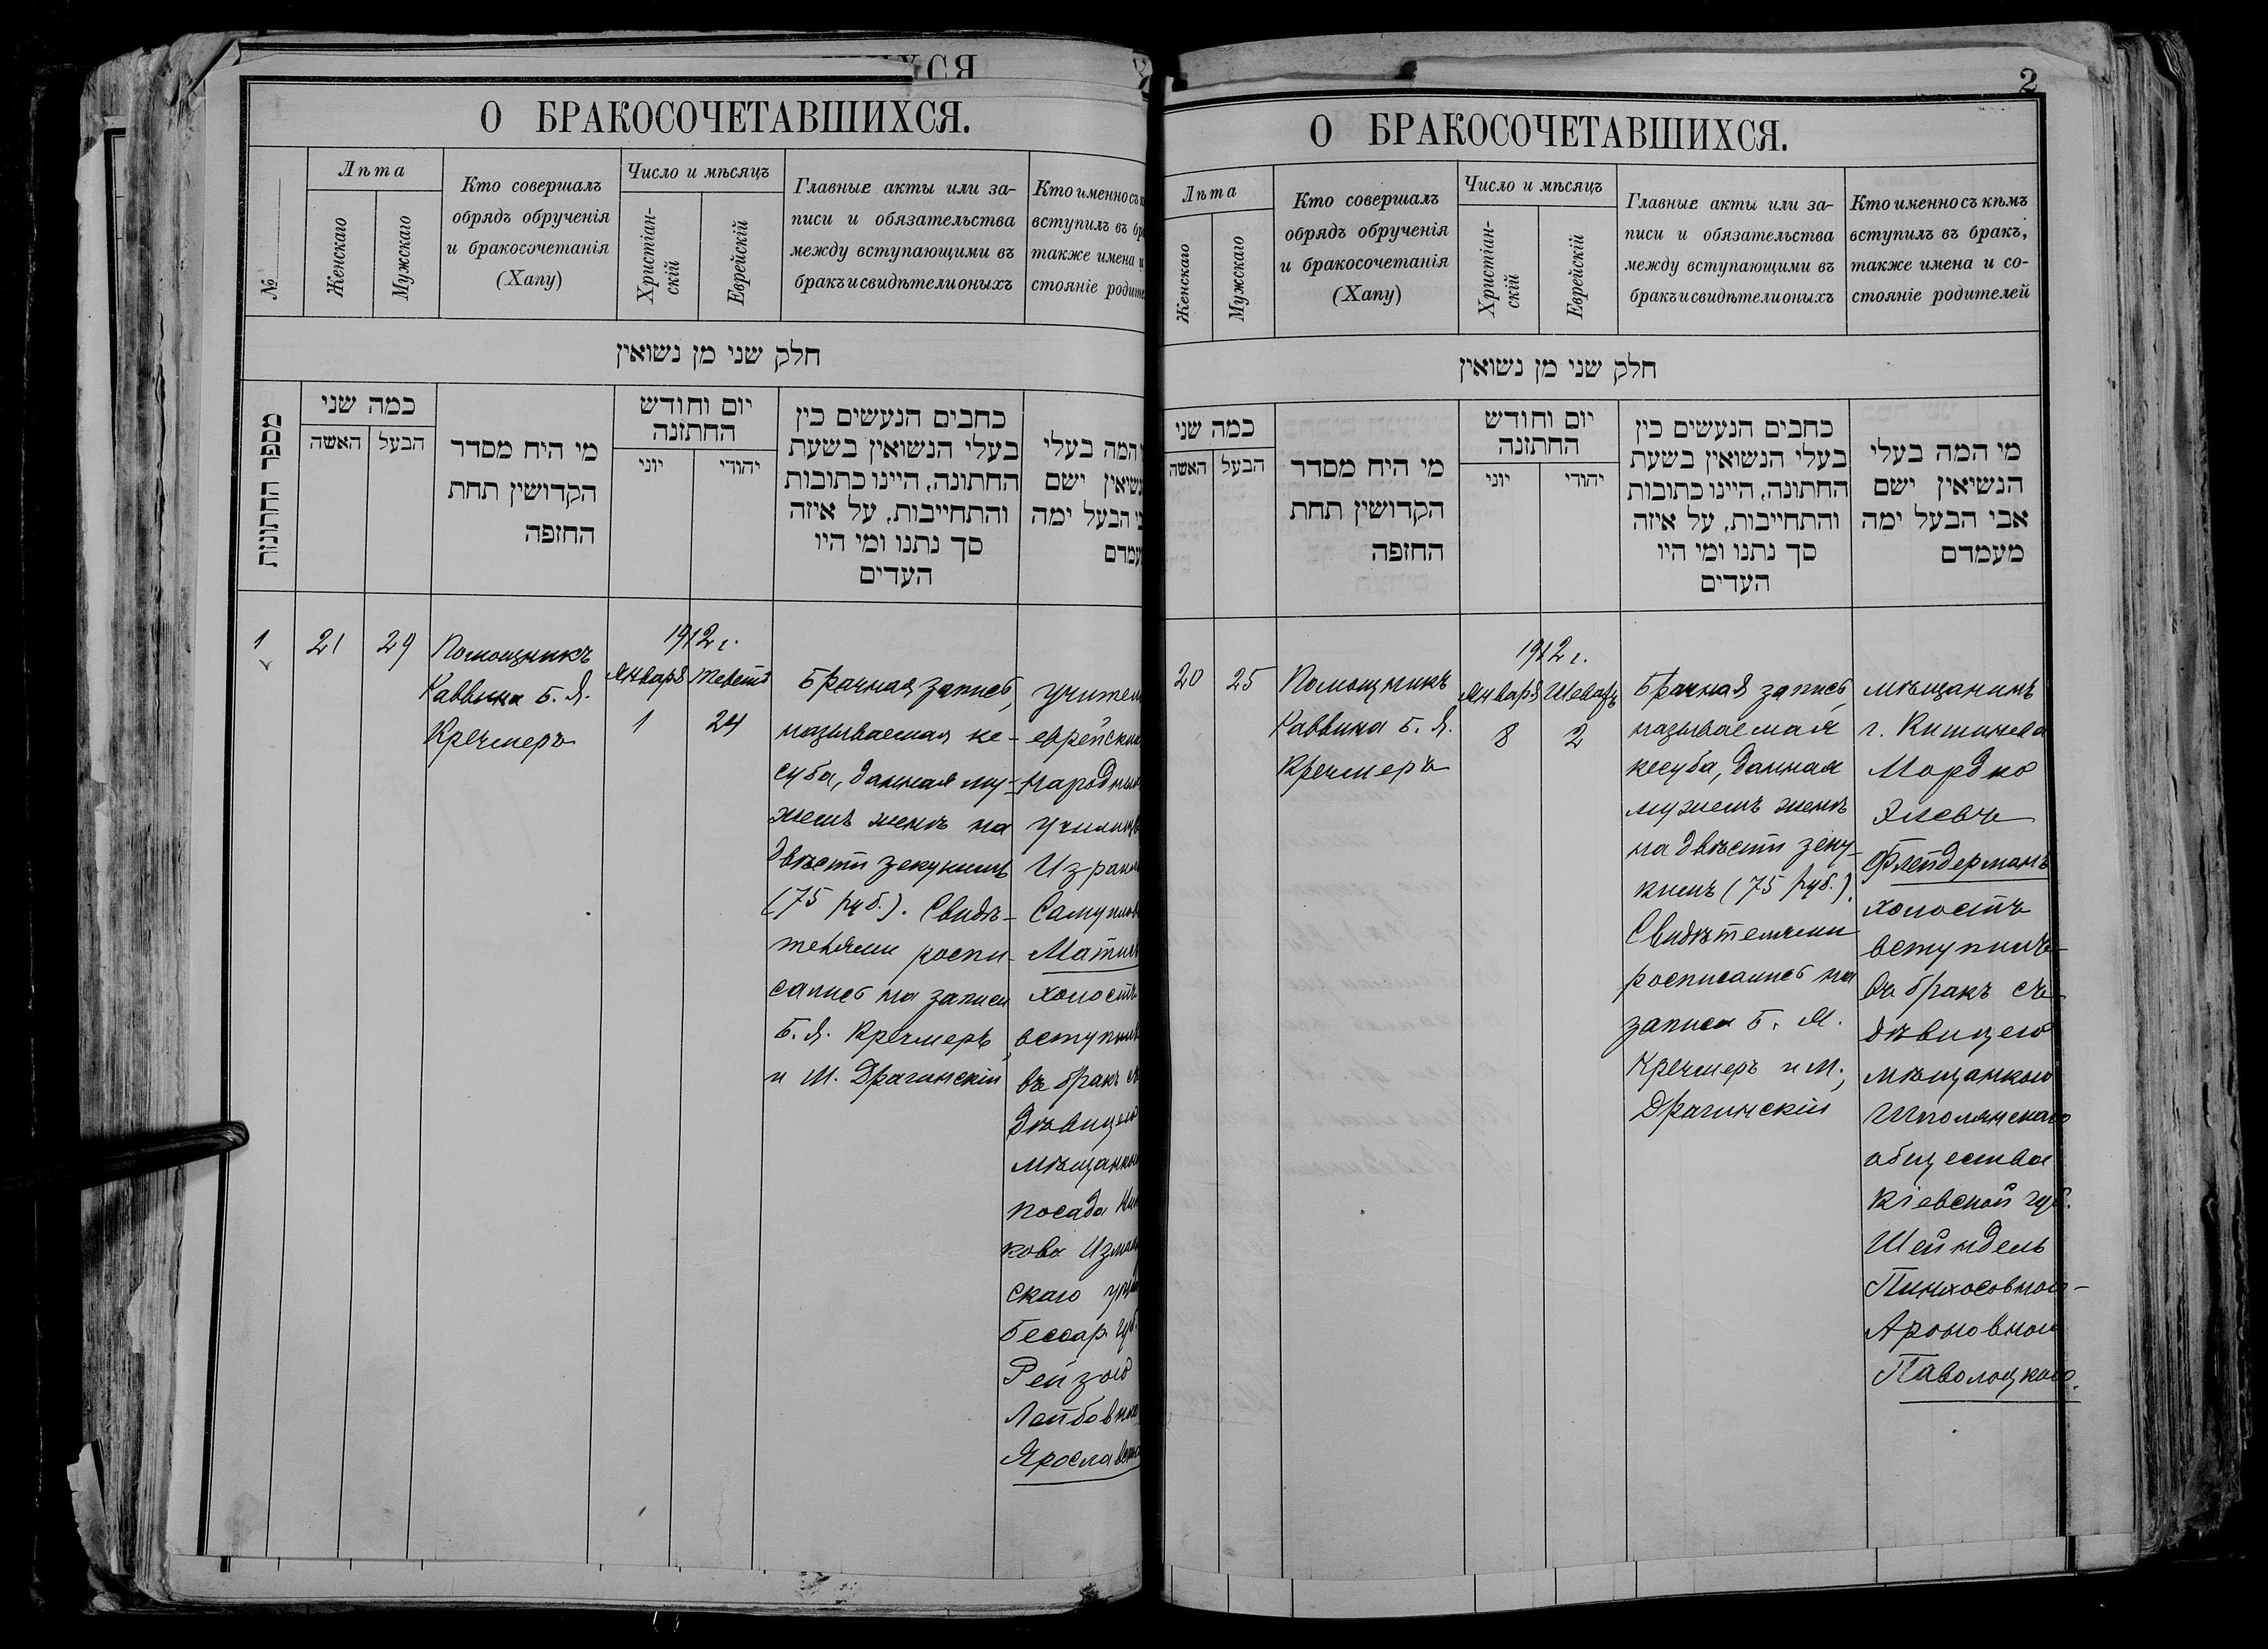 2
О БРАКОСОЧЕТАВШИХСЯ.
№
Лѣта
Женскаго
Мужскаго
Кто совершалъ
обрядъ обрученія
и бракосочетанія
(Хапу)
Число и мѣсяцъ
Христіан-
скій
Еврейскій
Главные акты или за-
писи и обязательства
между вступающими въ
бракъ и свидѣтели оныхъ
Кто именно съ
вступилъ въ
также имена
стояніе
חלק שני מן נשואין
מספר החתונות
כמה שני
האשה
הבעל
מי היח מסדר
הקדושין תחת
החופה
יום וחודש
החתונה
יוני
יהודי
כחבים הנעשים בין
בעלי הנשואין בשעת
החתונה, היינו כתובות
והתחייבות, על איזה
סך נתנו ומי היו
העדים
המה בעלי
ישם
הבעל ימה
1
21
29
Помощникъ
Раввина Б. Я.
Кречмеръ
1912 г.
Января
Тебетъ
1
24
Брачная запись,
называемая ке-
суба, данная му-
жемъ женѣ на
двѣсти зекукимъ
(75 руб.). Свидѣ-
телями роспи-
сались на записи
Б. Я. Кречмеръ
и М. Драгинскій
холостъ
въ бракъ
посада
кова
скаго
Бессар. губ.
Рейзою
О БРАКОСОЧЕТАВШИХСЯ.
Лѣта
Женскаго
Мужскаго
Кто совершалъ
обрядъ обрученія
и бракосочетанія
(Хапу)
Число и мѣсяцъ
Христіан-
скій
Еврейскій
Главные акты или за-
писи и обязательства
между вступающими въ
бракъ и свидѣтели оныхъ
Кто именно съ кѣмъ
вступилъ въ бракъ,
также имена и со-
стояніе родителей
חלק שני מן נשואין
כמה שני
האשה
הבעל
מי היח מסדר
הקדושין תחת
החופה
יום וחודש
החתונה
יוני
יהודי
כחבים הנעשים בין
בעלי הנשואין בשעת
החתונה, היינו כתובות
והתחייבות, על איזה
סך נתנו ומי היו
העדים
מי המה בעלי
הנשואין ישם
אבי הבעל ימה
מעמדם
20
25
Помощникъ
Раввина Б. Я.
Кречмеръ
1912 г.
Января
Шевахъ
8
2
Брачная запись,
называемая
кесуба, данная
мужемъ женѣ
на двѣсти зеку-
кимъ (75 руб.).
Свидѣтелями
росписались на
записи Б. Я.
Кречмеръ и М.
Драгинскій
мѣщанинъ
г. Кишинева
Мордко
Элевъ
Флейдерманъ
холостъ
вступилъ
въ бракъ съ
дѣвицею
мѣщанкою
Шполянскаго
общества
Кіевской губ.
Шейндель
Пинхосовною-
Ароновною
Паволоцкою.